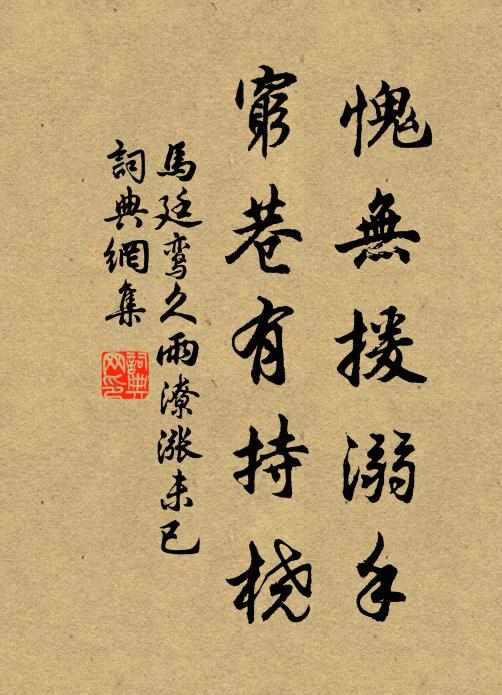 愧無援溺手
窮巷有持桡
馬廷鸾久雨潦漲未已
詞典網集
詞典网印